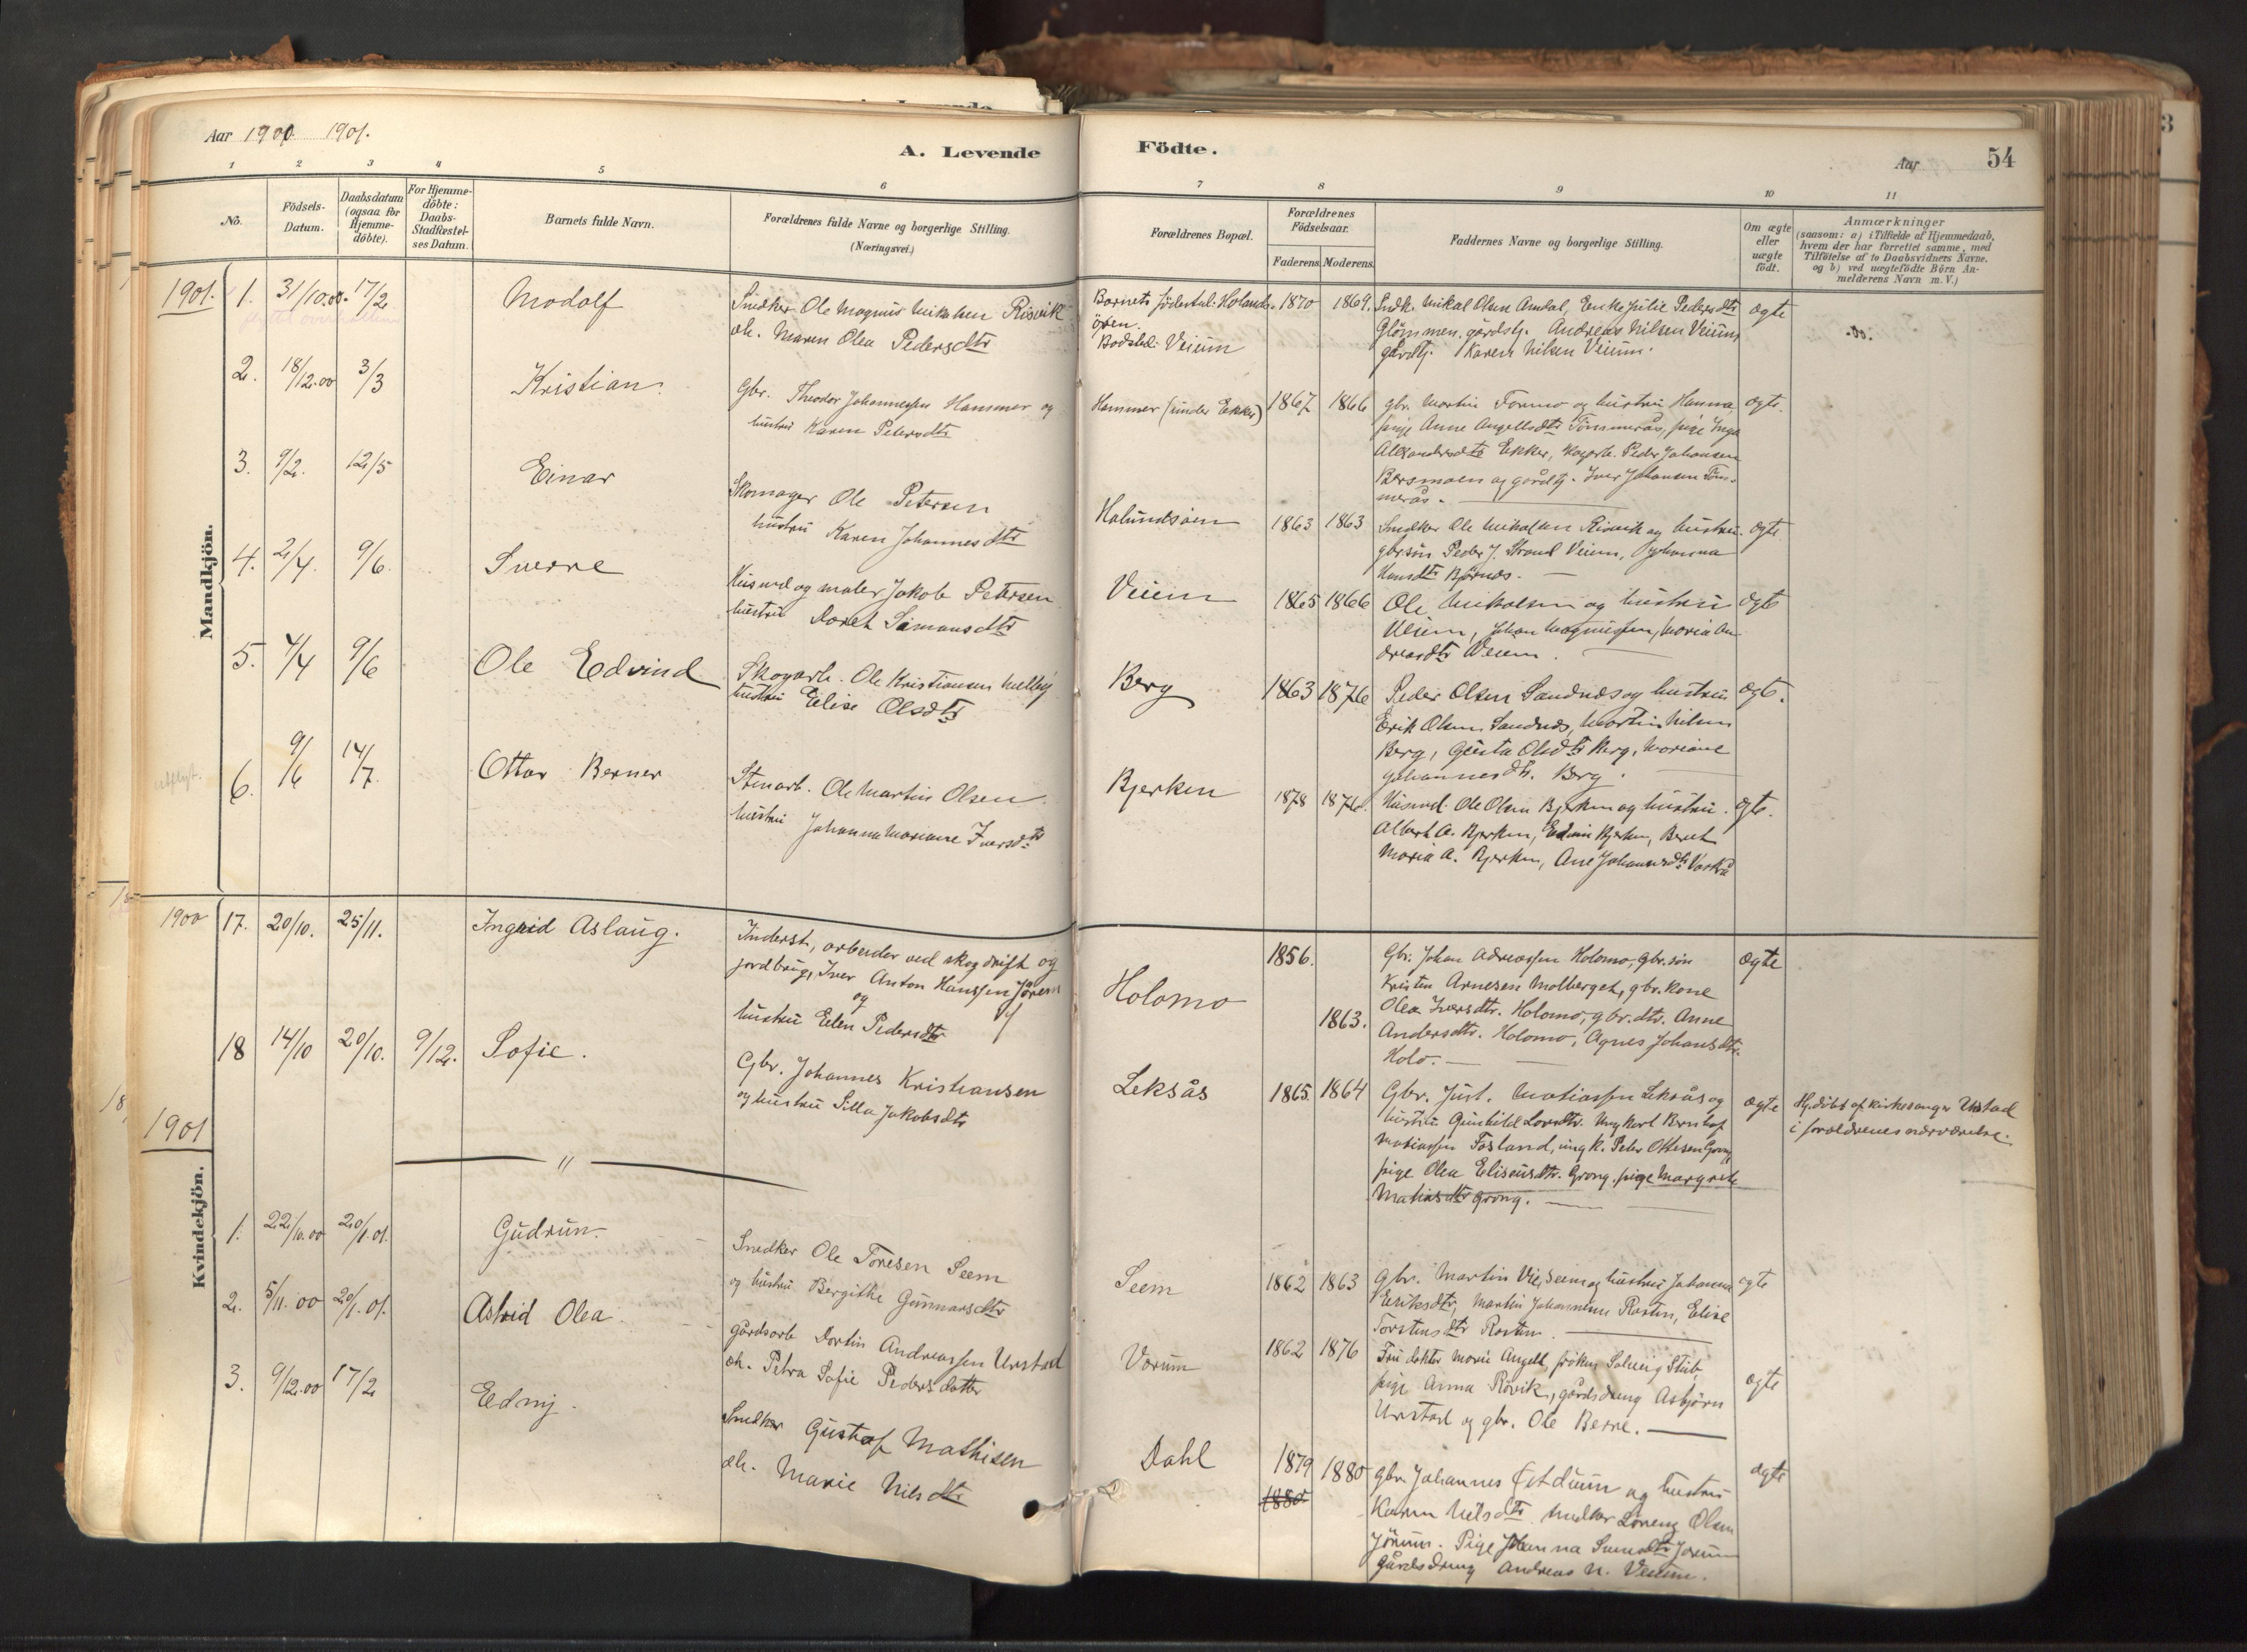 Aar 1900 1901.
A. Levende
Födte.
Aar
54
1 2 3 4 5 6 7 8 9 10 11
No.
Födsels-Datum.
Daabsdatum (ogsaa for Hjemmedöbte).
For Hjemmedöbte: Daabs-Stadfæstelses Datum.
Barnets fulde Navn.
Forældrenes fulde Navne og borgerlige Stilling. (Næringsvei.)
Forældrenes Bopæl.
Forældrenes Födselsaar.
Faderens. Moderens.
Faddernes Navne og borgerlige Stilling.
Om ægte eller uægte födt.
Anmærkninger
(saasom: a) i Tilfælde af Hjemmedaab,
hvem der har forrettet samme, med
Tilföielse af to Daabsvidners Navne.
og b) ved uægtefödte Börn An-
melderens Navn m. V.)
Mandkjön.
1901. 1. 31/10.00. 17/2 Modolf
Snedker Ole Magnus Mikalsen Risvik
oh. Maren Olea Pedersdtr
Barnets födested: Holands-
ören.
Bosted: Veium
1870 1869.
Snedk. Mikal Olsen Amdal, Enke Julie Pedersdtr
Glömmen, gårdbj. Andreas Nilsen Veium,
Karen Nilsen Veium.
ægte
2. 18/12.00 3/3 Kristian.
Gbr. Theodor Johannessen Hammer og
hustru Karen Petersdtr
Hammer (under Ekker)
1867 1866
gbr. Martin Formo og hustru Hanna,
pige Anne Angellsdtr Tömmerås, pige Inga
Alexandersdtr Ekker, skogarb. Peder Johansen
Bersmoen og gårdbj. Iver Johansen Töm-
merås.
ægte.
3. 9/2. 12/5 Einar
Skomager Ole Petersen
hustru Karen Johannesdtr
Halundsöien
1863 1863
Snedker Ole Mikalsen Risvik og hustru.
gbrsön Peder J. Strand Veiem, Johanna
Hansdtr Björnes.
ægte.
4. 2/4. 9/6. Sverre
Husmd og maler Jakob Petersen
hustru Doret Simonsdtr
Veiem
1865 1866
Ole Mikalsen og hustru
Veiem, Johan Magnussen, Maria An-
dreasdtr Veiem.
ægte
5. 4/4 9/6 Ole Edvind
Skogarb. Ole Kristiansen Melby
hustru Elise Olsdtr
Berg
1863 1876
Peder Olsen Sandnes og hustru
Erik Olsen Sandnes, Martin Nilsen
Berg, Gusta Olsdtr Berg, Mariane
Johannesdtr. Berg.
ægte.
utflyt. 6. 9/6 14/7. Ottar Berner
Stenarb. Ole Martin Olsen.
hustru Johanna Mariane Iversdtr
Bjerken
1878 1876.
Husmd. Ole Olsen Bjerken og hustru.
Albert A. Bjerken, Edvin Bjerken, Beret
Maria A. Bjerken, Ane Johannesdtr Vaskå
ægte.
1900 17. 20/10. 25/11. Ingrid Aslaug.
Inderst, arbeider ved skogdrift og
jordbrug, Iver Anton Hanssen Jörem
og
hustru Elen Pedersdtr
Holomo
1856. 1863.
Gbr. Johan Adreassen Holomo, gbr.sön
Kristen Arnesen Molberget, gbr.kone
Olea Iversdtr. Holomo, gbr.dtr. Anne
Andersdtr. Holomo, Agnes Johansdtr.
Holo.
ægte
18 14/10 20/10. 9/12. Sofie.
Gbr. Johannes Kristiansen
og hustru Silla Jakobsdtr
Leksås
1865. 1864
Gbr. Just. Matiassen Leksås og
hustru Gunhild Larsdtr. Ungkarl Bernhof
Matiassen Fosland, ungk. Peter Ottesen Grong,
pige Olea Eliseusdtr. Grong. pige Margrete
Matiasdtr Grong.
ægte
Hj.döbt af kirkesanger Urstad
i forældrenes nærværelse.
1901
Kvindekjön.
"
1. 22/10.00 20/1.01. Gudrun.
Snedker Ole Toresen Seem
og hustru Bergithe Gunnarsdtr
Seem
1862 1863
Gbr. Martin Vie, Seem og hustru Johanna
Eriksdtr, Martin Johannesen Rosten, Elise
Torstensdtr Rosten.
ægte
2. 5/11.00 20/1.01. Astrid Olea.
Gårdsarb Dortin Andreassen Urstad
oh. Petra Sofie Pedersdatter
Vorum
1862 1876
Fru doktor Marie Angell, fröken Solveig Stub,
pige Anna Rövik, gårdsdreng Asbjörn
Urstad og gbr. Ole Berre.
ægte
3. 9/12.00 17/2 Eedny.
Snedker Gustaf Mathisen
oh. Marie Nilsdtr
Dahl
1879 1880
1880
gbr. Johannes Östduun og hustru
Karen Nilsdtr. Snedker Lorens Olsen
Jörum. Pige Johanna Svensdtr Jorum
Gårdsdreng Andreas N. Veium.
ægte